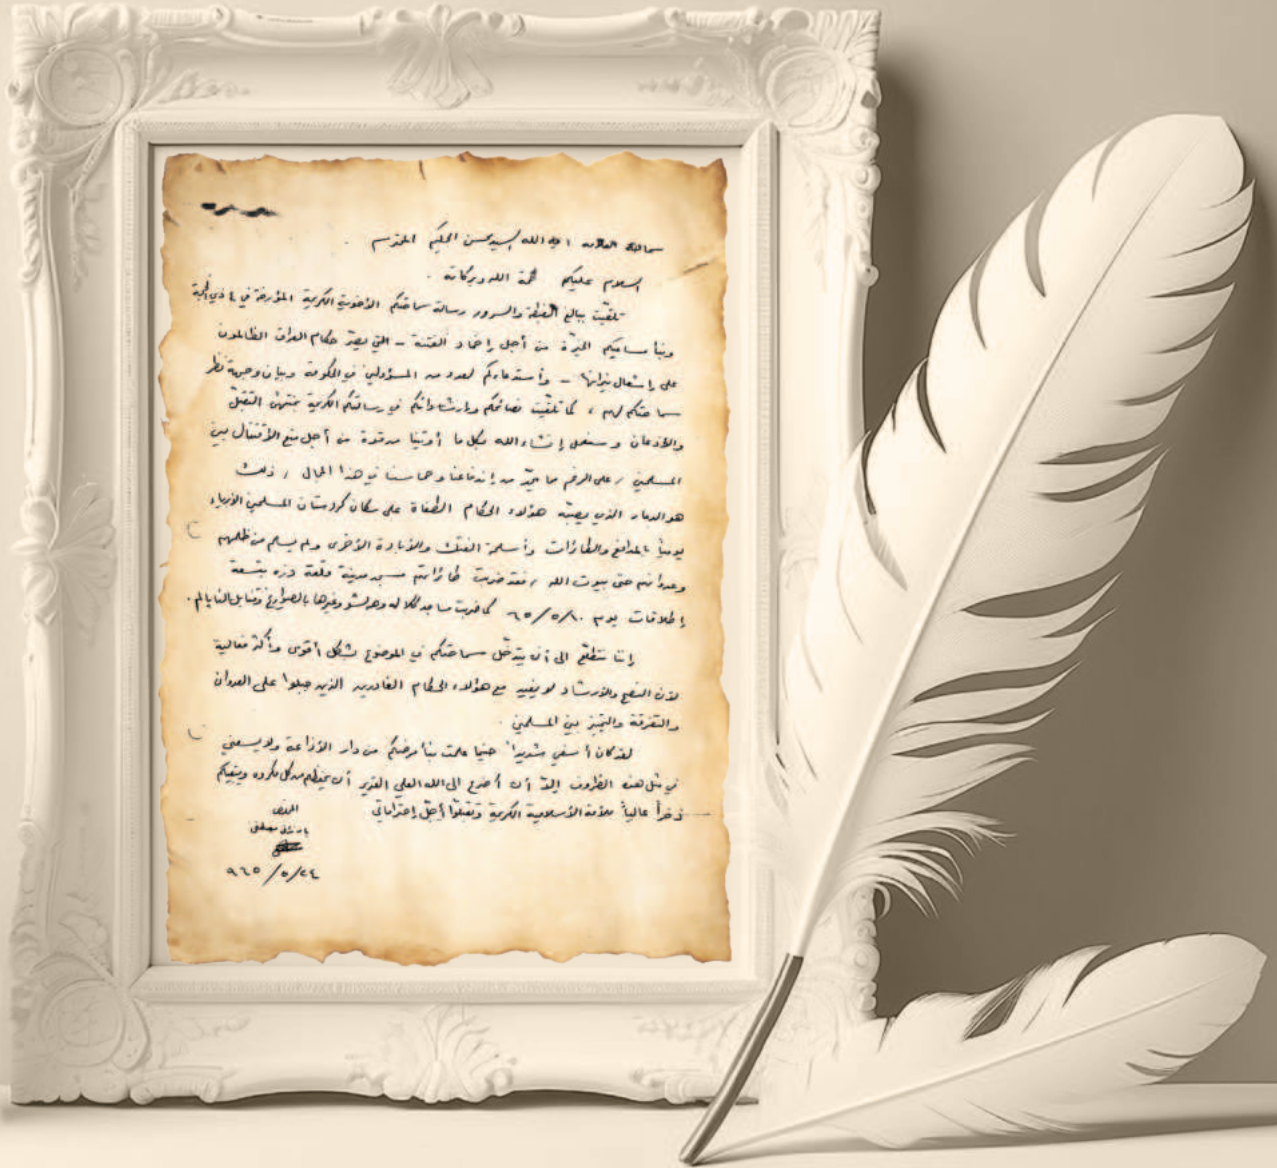 سماحة العلامة آية الله السيد محسن الحكيم المحترم .
السلام عليكم ورحمة الله وبركاته .
تلقيت ببالغ الغبطة والسرور رسالة سماحتكم الأخوية الكريمة المؤرخة في ٤ ذي الحجة
ونبأ مساعيكم الخيّرة من أجل إخماد الفتنة – التي يصرّ حكام العراق الظالمون
على إشعال نيرانها – وأستدعاءكم لعدد من المسؤولين في الحكومة وبيان وجهة نظر
سماحتكم لهم ، كما تلقّيت نصائحكم وإرشاداتكم في رسالتكم الكريمة بمنتهى التقبّل
والأذعان وسنعمل إنشاء الله بكل ما أوتينا من قوة من أجل منع الأقتتال بين
المسلمين ، على الرغم مما يحدّ من إندفاعنا وحماسنا في هذا المجال ، ذلك
هو الدمار الذي يصبّه هؤلاء الحكام الطغاة على سكان كردستان المسلمين الأبرياء
يومياً بالمدافع والطائرات وأسلحة الفتك والأبادة الأخرى ولم يسلم من ظلمهم
وعدوانهم حتى بيوت الله ، فقد ضربت طائراتهم مسجد مدينة قلعة دزه بتسعة
إطلاقات يوم ١٠/٥/٦٥ كما ضربت مساجد كلاله وغيرها بالصواريخ وقنابل النابالم .
إننا نتطلّع الى أن يتدخّل سماحتكم في الموضوع بشكل أقوى وأكثر فعالية
لأن النصح والأرشاد لا يفيد مع هؤلاء الحكام الغادرين الذين جبلوا على العدوان
والتفرقة والتمييز بين المسلمين .
لقد كان أسفي شديداً حينما علمت بنبأ مرضكم من دار الأذاعة ولا يسعني
في مثل هذه الظروف إلاّ أن أضرع الى الله العلي القدير أن يحفظكم من كل مكروه ويبقيكم
ذخراً عالياً للأمة الأسلامية الكريمة وتقبلوا أجلّ إحتراماتي
المخلص
بارزاني مصطفى
٩٦٥/٥/٢٤